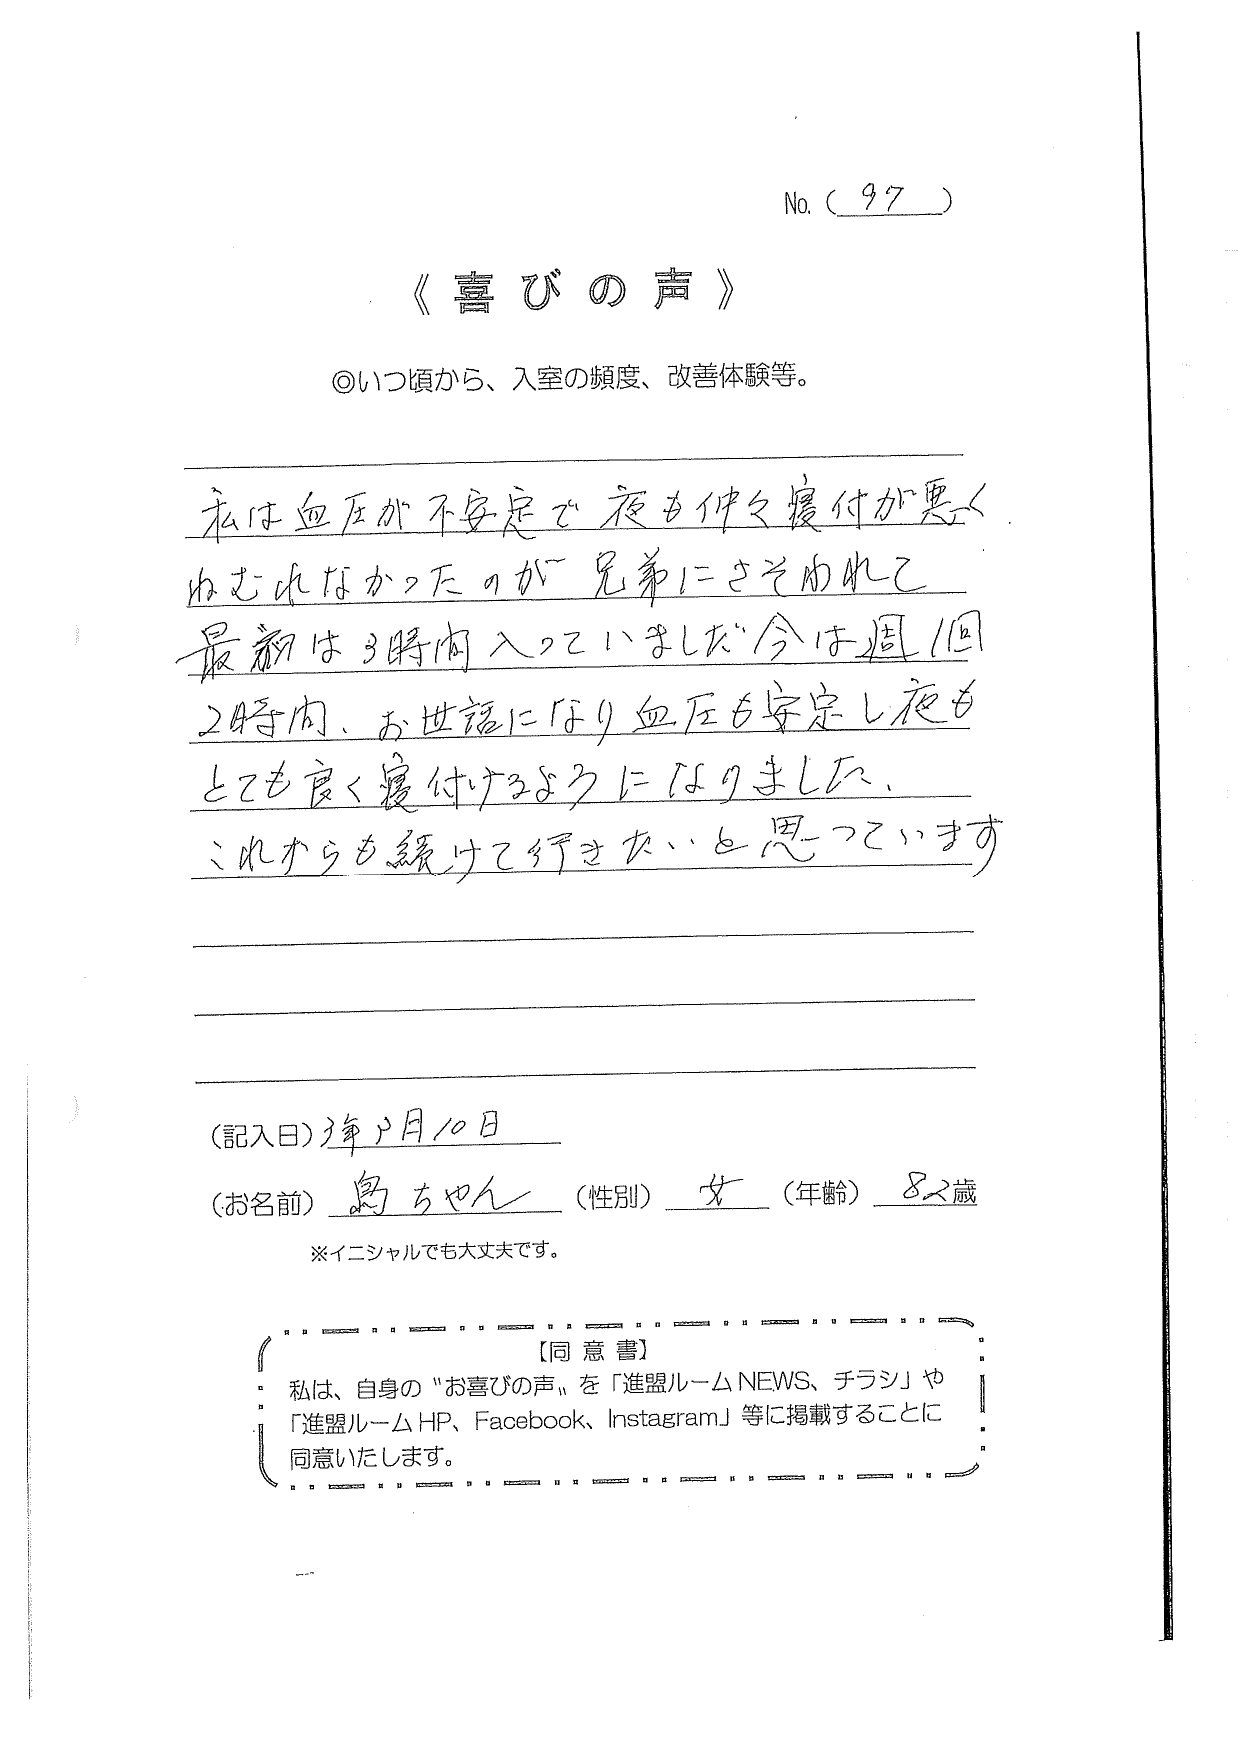 No.( 97 )
《喜びの声》
◎いつ頃から、入室の頻度、改善体験等。
私は血圧が不安定で夜も仲々寝付が悪く
ねむれなかったのが兄弟にさそわれて
最初は3時間入っていましだ今は週1回
2時間、お世話になり血圧も安定し夜も
とても良く寝付けるようになりました、
これからも続けて行きたいと思っています
(記入日)3年 月10日
(お名前) ちゃん (性別) 女 (年齢) 82歳
※イニシャルでも大丈夫です。
【同意書】
私は、自身の〝お喜びの声〟を「進盟ルームNEWS、チラシ」や
「進盟ルームHP、Facebook、Instagram」等に掲載することに
同意いたします。